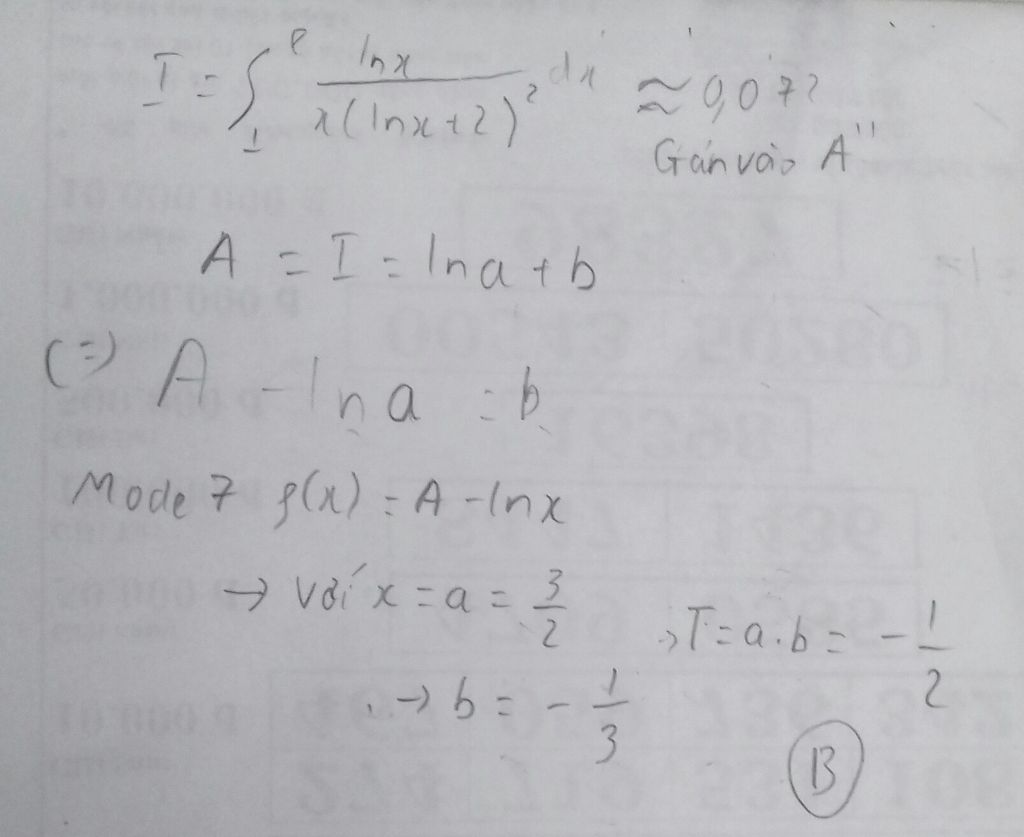 I = ∫₁ᵉ lnx / x(lnx+2)² dx ≈ 0,072
Gán vào A"
A = I = lna + b
(=) A - lna = b
Mode 7 f(x) = A - lnx
→ với x = a = 3/2
→ T = a.b = - 1/2
→ b = - 1/3
B